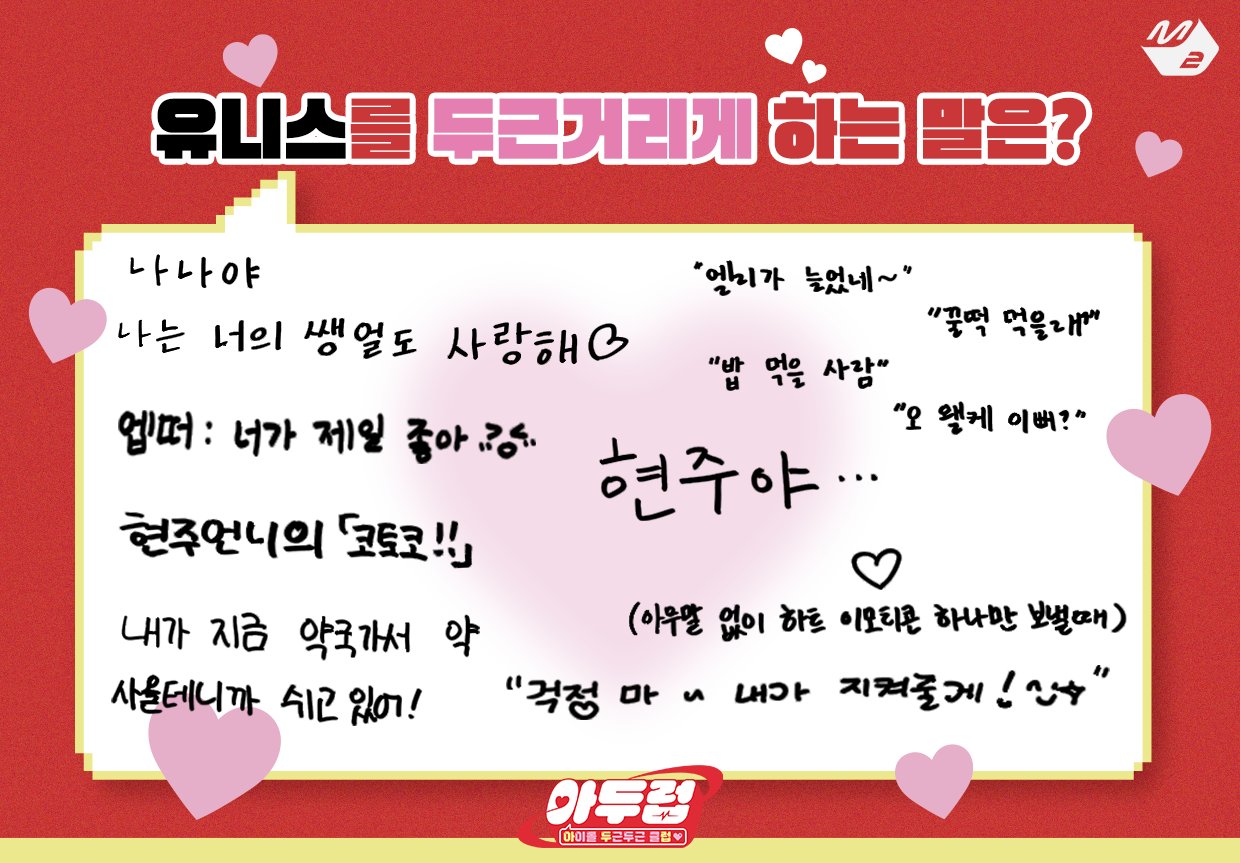 M2
유니스를 두근거리게 하는 말은?
나나야
나는 너의 쌩얼도 사랑해♡
엡떠: 너가 제일 좋아
현주언니의 「코토코!!」
내가 지금 약국가서 약
사올테니까 쉬고 있어!
"엘리가 늘었네~"
"꿀떡 먹을래?"
"밥 먹을 사람"
"오 왤케 이뻐?"
현주야...
♡
(아무말 없이 하트 이모티콘 하나만 보낼때)
"걱정 마 ~ 내가 지켜줄게!"
아두럽
아이돌 두근두근 클럽